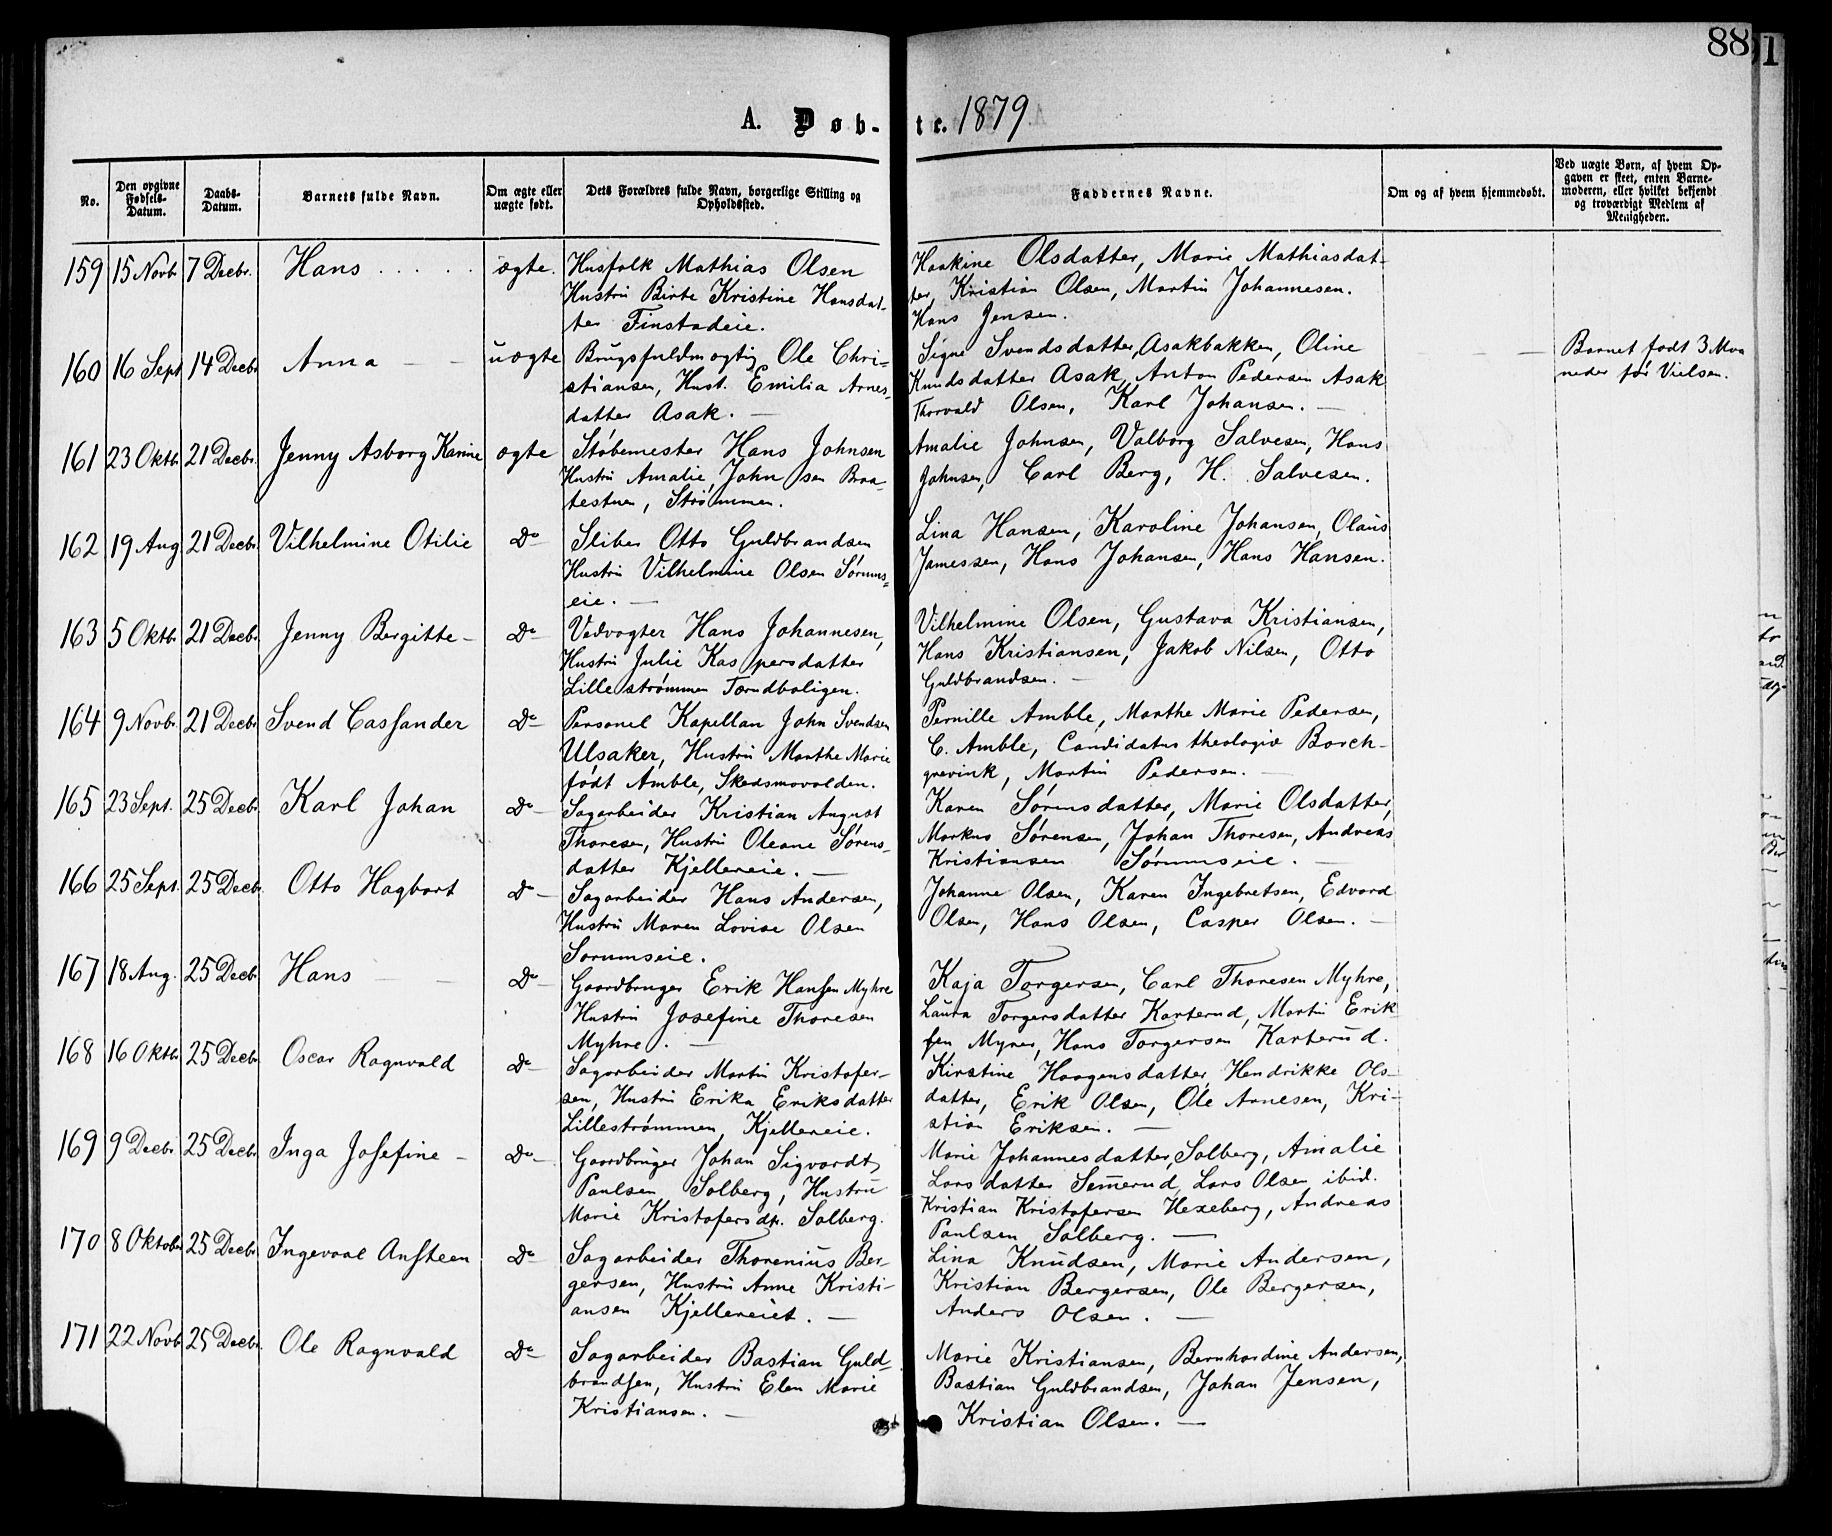 88
91
A. Døb-
te. 1879
No.
Den opgivne Fødsels-Datum.
Daabs-Datum.
Barnets fulde Navn.
Om ægte eller uægte født.
Dets Forældres fulde Navn, borgerlige Stilling og Opholdssted.
Faddernes Navne.
Om og af hvem hjemmedøbt.
Ved uægte Børn, af hvem Op-
gaven er skeet, enten Barne-
moderen, eller hvilket bekjendt
og troværdigt Medlem af
Menigheden.
159 15 Novb. 7 Decbr. Hans ægte.
Husfolk Mathias Olsen
Hustru Birte Kristine Hansdat-
ter Finstadeie.
Haakine Olsdatter, Marie Mathiasdat-
ter, Kristian Olsen, Martin Johannesen.
Hans Jensen.
160 16 Sept 14 Decbr Anna uægte
Brugsfuldmægtig Ole Chri-
stiansen, Hust. Emilia Arnes-
datter Asak.
Signe Svendsdatter, Asakbakken, Oline
Knudsdatter Asak, Anton Pedersen Asak
Thorvald Olsen, Karl Johansen.
Barnet født 3 Maa
neder før Vielsen.
161 23 Oktb. 21 Decbr. Jenny Asborg Karine ægte
Støbemester Hans Johnsen
Hustru Amalie, Johnsen Braa-
testuen, Strømmen.
Amalie Johnsen, Valborg Salvesen, Hans
Johnsen, Carl Berg, H. Salvesen.
162 19 Aug 21 Decbr. Vilhelmine Otilie Do
Sliber Otto Guldbrandsen
Hustru Vilhelmine Olsen Sørums-
eie.
Lina Hansen, Karoline Johansen, Olaus
Jamessen, Hans Johansen, Hans Hansen.
163 5 Oktb. 21 Decbr. Jenny Bergitte Do
Vedvogter Hans Johannesen,
Hustru Julie Kaspersdatter
Lillestrømmen Torndboligen.
Vilhelmine Olsen, Gustava Kristiansen,
Hans Kristiansen, Jakob Nilsen, Otto
Guldbrandsen.
164 9 Novbr. 21 Decbr Svend Cassander Do
Personel Kapellan John Svendsen
Ulsaker, Hustru Marthe Marie
født Amble, Skedsmovolden.
Pernille Amble, Marthe Marie Pedersen,
C. Amble, Candidatus theologiæ Borch-
grevink, Martin Pedersen.
165 23 Sept. 25 Decbr Karl Johan Do
Sagarbeider Kristian August
Thoresen, Hustru Oleane Sørens-
datter Kjellereie.
Karen Sørensdatter, Marie Olsdatter,
Markus Sørensen, Johan Thoresen, Andreas
Kristiansen Sørumseie.
166 25 Sept. 25 Decbr. Otto Hagbart Do
Sagarbeider Hans Andersen,
Hustru Maren Lovise Olsen
Sorumseie.
Johanne Olsen, Karen Ingebretsen, Edvard
Olsen, Hans Olsen, Casper Olsen.
167 18 Aug. 25 Decb. Hans Do
Gaardbruger Erik Hansen Myhre
Hustru Josefine Thoresen
Myhre.
Kaja Torgersen, Carl Thoresen Myhre,
Laura Torgersdatter Karterud, Martin Erik-
sen Myrer, Hans Torgersen Karterud.
168 16 Oktb. 25 Decbr Oscar Ragnvald Do
Sagarbeider Martin Kristofer-
sen, Hustru Erika Eriksdatter
Lillestrømmen, Kjellereie.
Kirstine Haagensdatter, Hendrikke Ols-
datter, Erik Olsen, Ole Arnesen, Kri-
stian Eriksen.
169 9 Decbr. 25 Decbr. Inga Josefine Do
Gaardbruger Johan Sigvardt
Paulsen Solberg, Hustru
Marie Kristofersdtr. Solberg.
Marie Johannesdatter, Solberg, Amalie
Larsdatter Semerud, Lars Olsen ibid.
Kristian Kristofersen Hexeberg, Andreas
Paulsen Solberg.
170 8 Oktober 25 Decbr. Ingevaal Ansteen Do
Sagarbeider Thorenius Ber-
gersen, Hustru Anne Kristi-
ansen Kjellereiet.
Lina Knudsen, Marie Andersen,
Kristian Bergersen, Ole Bergersen,
Anders Olsen.
171 22 Novb 25 Decbr. Ole Ragnvald Do
Sagarbeider Bastian Guld-
brandsen, Hustru Elen Marie
Kristiansen.
Marie Kristiansen, Bernhardine Andersen,
Bastian Guldbrandsen, Johan Jensen,
Kristian Olsen.